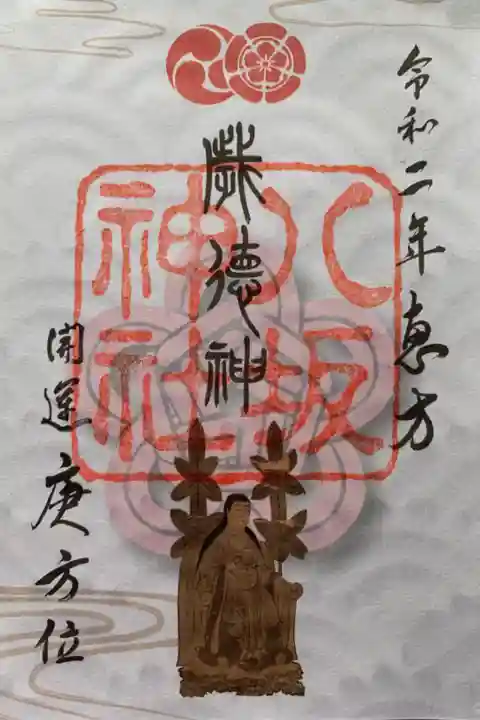 令和二年恵方
歳徳神
八坂
神社
開運庚方位